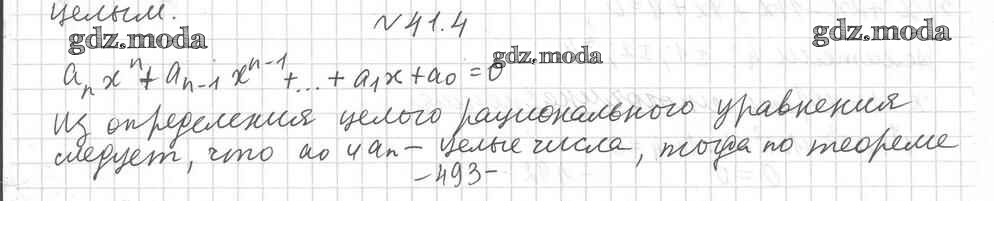 целым.
№41.4
gdz.moda
gdz.moda
gdz.moda
aₙxⁿ + aₙ₋₁xⁿ⁻¹ + ... + a₁x + a₀ = 0
Из определения целого рационального уравнения
следует, что a₀ и aₙ – целые числа, тогда по теореме
-493-